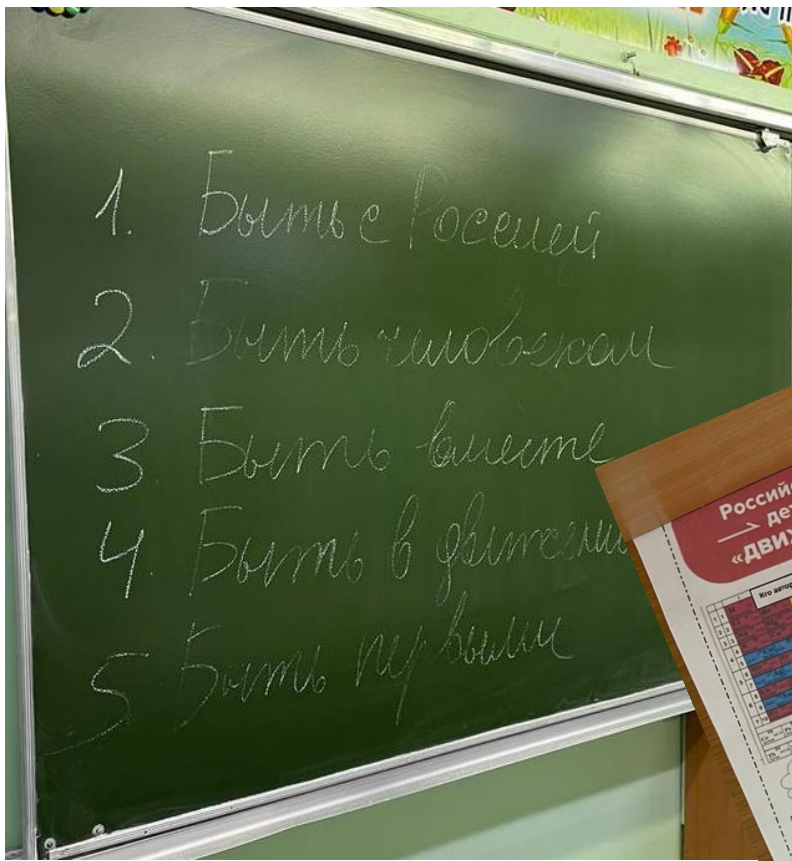 1. Быть с Россией
2. Быть человеком
3 Быть вместе
4. Быть в движении
5 Быть первыми
Россий
→ дет
«ДВИЖ
Кто автор